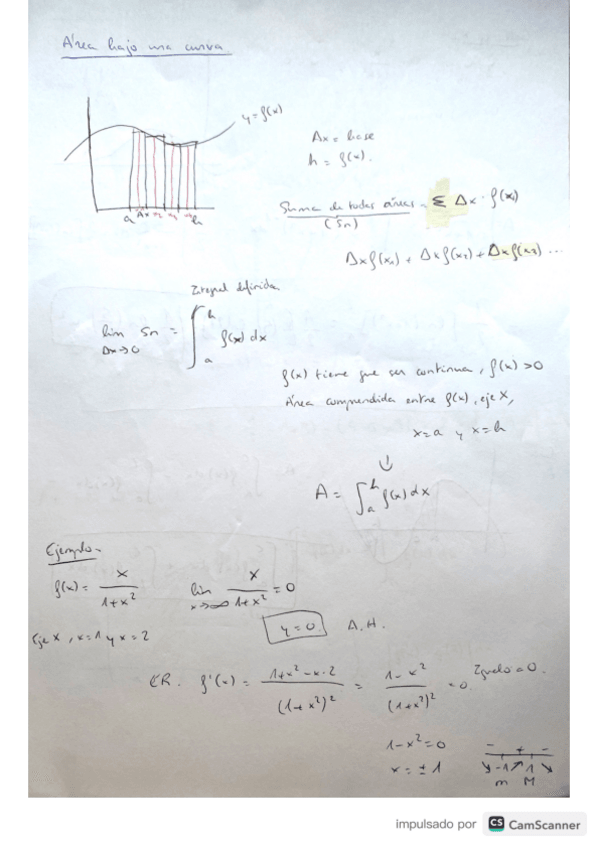 Área bajo una curva
y = f(x)
Δx = base
h = f(x).
a Δx b
Suma de todas áreas = Σ Δx · f(xi)
(Sn)
Δx f(x₁) + Δx f(x₂) + Δx f(x₃) ...
Integral definida
lim Sn = ∫ₐᵇ f(x) dx
Δx→0
f(x) tiene que ser continua, f(x) > 0
Área comprendida entre f(x), eje X,
x=a y x=b
⇓
A = ∫ₐᵇ f(x) dx
Ejemplo-
f(x) = x / (1+x²) lim x→∞ x / (1+x²) = 0
y=0 A.H.
Eje X, x=1 y x=2
CR. f'(x) = (1+x²-x·2) / (1+x²)² = (1-x²) / (1+x²)² = 0. Igualo a 0.
1-x²=0
x = ±1
- + -
↘ -1 ↗ 1 ↘
m M
impulsado por CS CamScanner